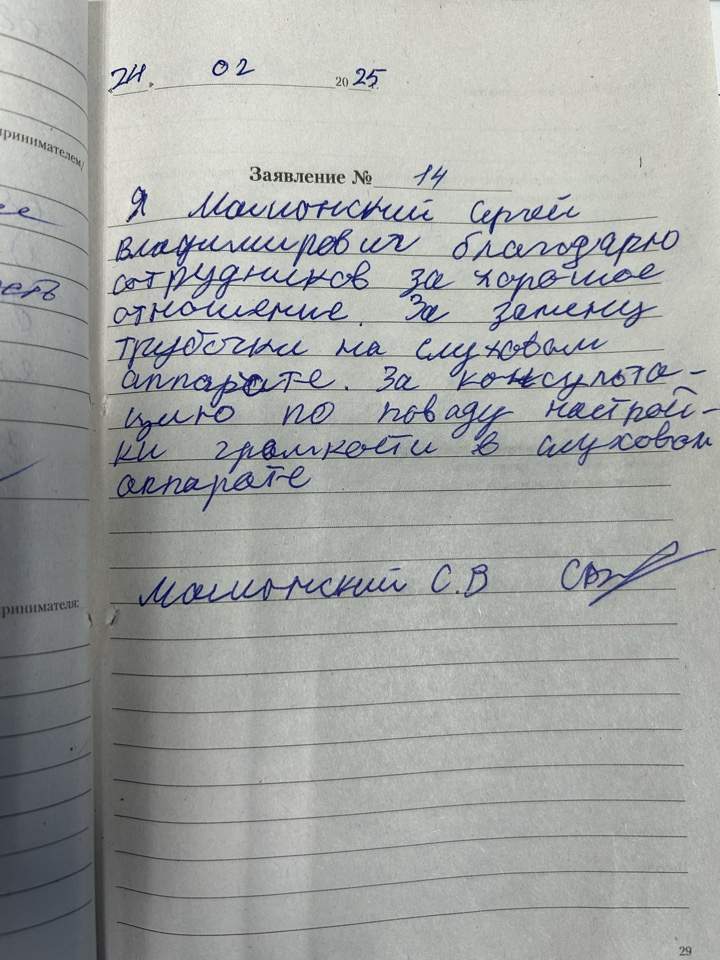 24. 02 2025
ринимателем/
Заявление № 14
Я Мамонский Сергей
Владимирович благодарю
сотрудников за хорошое
отношение. За замену
трубочки на слуховом
аппарате. За консульта-
цию по поваду настрой-
ки грамкости в слуховом
аппарате
Мамонский С.В
ринимателя:
29